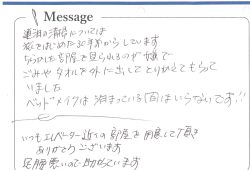 Message
連泊の清掃については
旅をはじめた30年前からしています
ちらかった部屋を見られるのが嫌で
ごみやタオルを外に出してとりかえてもらって
いました
ベッドメイクは泊まっている間はいらないです!!
いつもエレベーター近くの部屋を用意して頂き
ありがとうございます
足腰悪いので助かっています